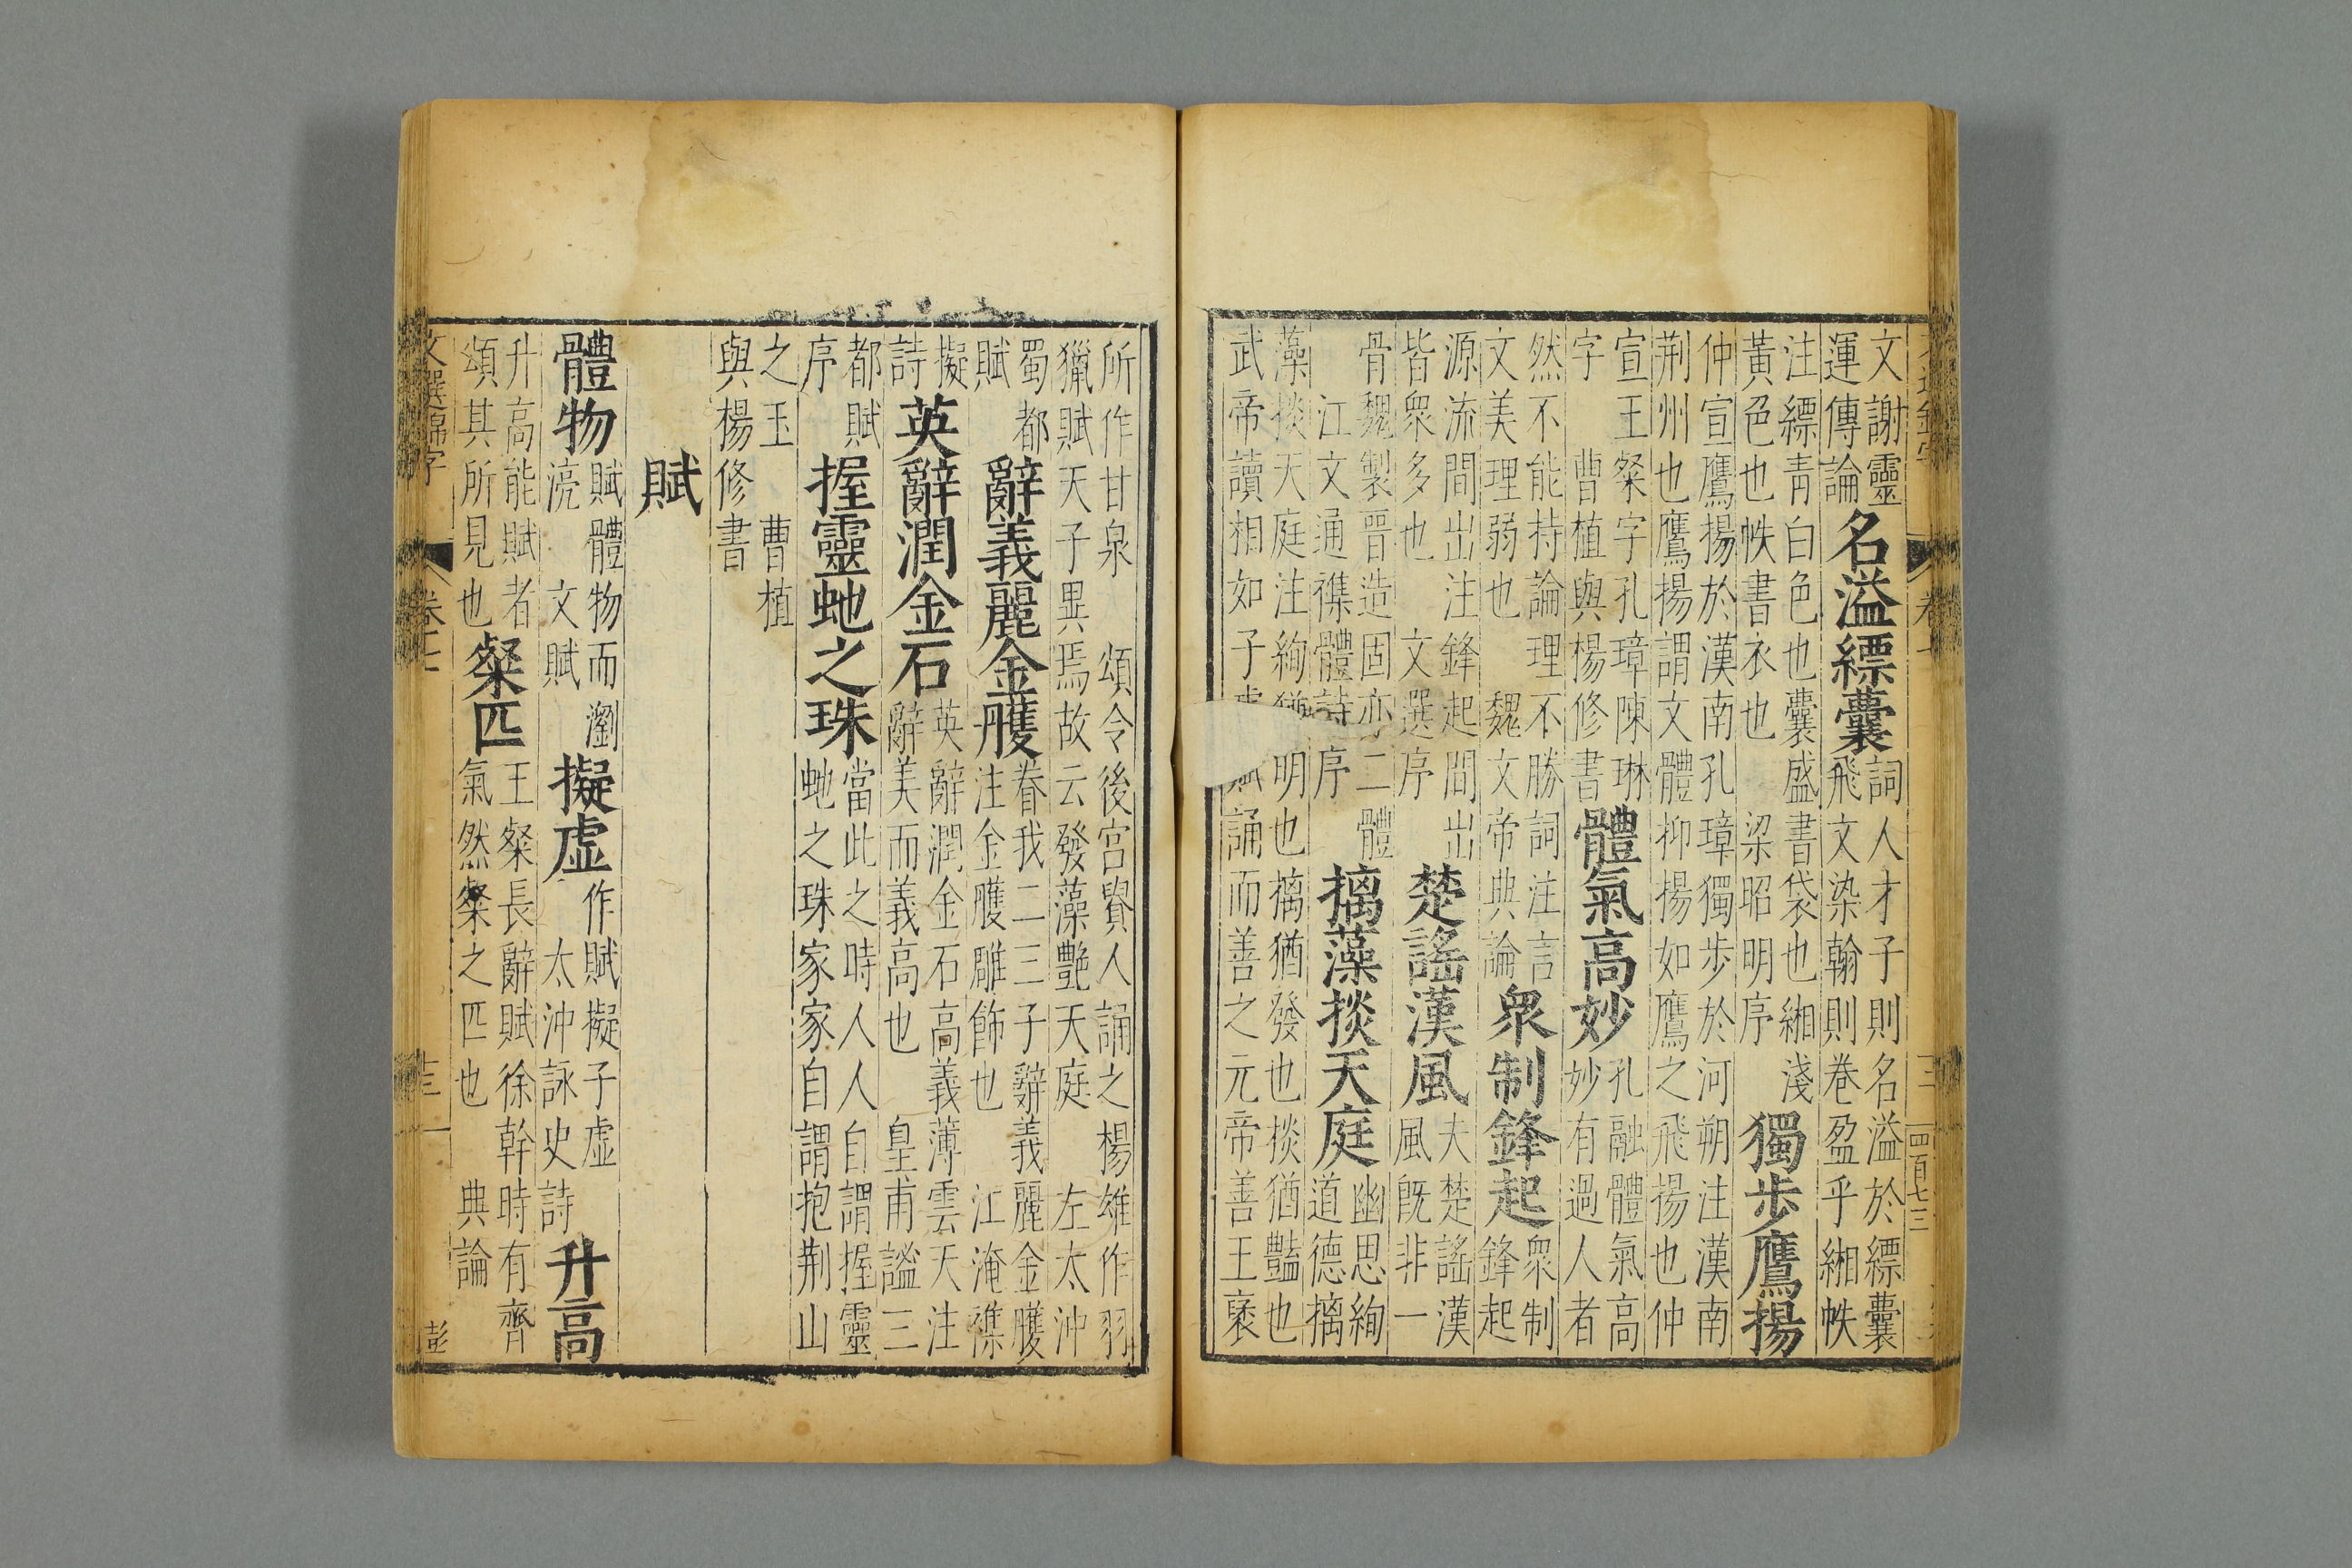 文謝靈
運傳論
名溢縹囊
詞人才子則名溢於縹囊
飛文染翰則卷盈乎緗帙
注縹青白色也囊盛書袋也緗淺
黃色也帙書衣也　梁昭明序
獨步鷹揚
仲宣鷹揚於漢南孔璋獨步於河朔注漢南
荆州也鷹揚謂文體抑揚如鷹之飛揚也仲
宣王粲字孔璋陳琳
字　曹植與楊修書
體氣高妙
孔融體氣高
妙有過人者
然不能持論理不勝詞注言
文美理弱也　魏文帝典論
衆制鋒起
衆制
鋒起
源流間出注鋒起間出
皆衆多也　文選序
楚謠漢風
夫楚謠漢
風既非一
骨魏製晉造固亦二體
江文通襍體詩序
摛藻掞天庭
幽思絢
道德摛
藻掞天庭注絢猶明也摛猶發也掞猶豔也
武帝讀相如子賦誦而善之元帝善王褒
四百七三
所作甘泉　頌令後宮貴人誦之楊雄作羽
獵賦天子異焉故云發藻艷天庭　左太沖
蜀都
賦
辭義麗金雘
眷我二三子辭義麗金雘
注金雘雕飾也　江淹襍
擬
詩
英辭潤金石
英辭潤金石高義薄雲天注
辭美而義高也　皇甫謐三
都賦
序
握靈虵之珠
當此之時人人自謂握靈
虵之珠家家自謂抱荆山
之玉　曹植
與楊修書
賦
體物
賦體物而瀏
文賦
擬虛
作賦擬子虛
太沖詠史詩
升高
升高能賦者
頌其所見也
粲匹
王粲長辭賦徐幹時有齊
氣然粲之匹也　典論
文選錦字
卷
彭